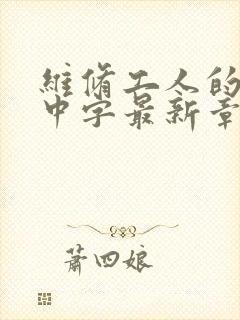 維修工人的
中字最新章
蕭四娘